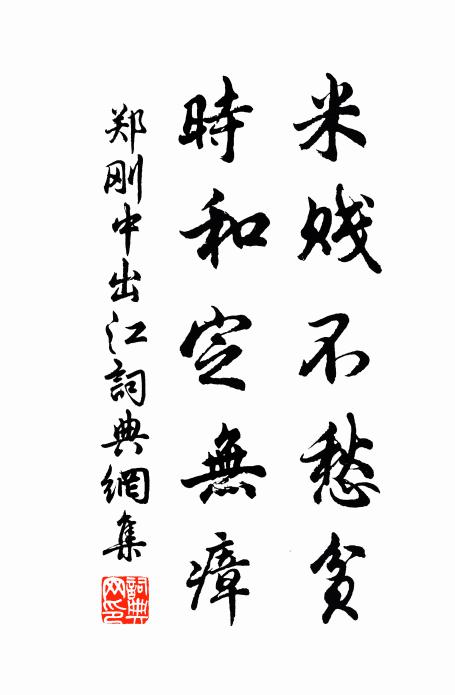 米賤不愁貧
時和定無瘴
郑刚中出江詞典網集
詞典網印